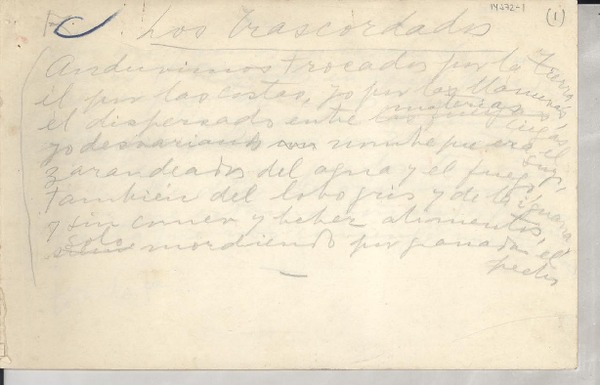 14272-1
(1)
Los trascordados
Anduvimos trocados por la Tierra
él por las costas, yo por las llanuras,
el dispersado entre materias ciegas,
yo desvariando nombre que era el suyo,
zarandeados del agua y el fuego,
también del lobo gris y de la iguana,
y sin comer y beber alimentos,
solo mordiendo por granada el
pecho